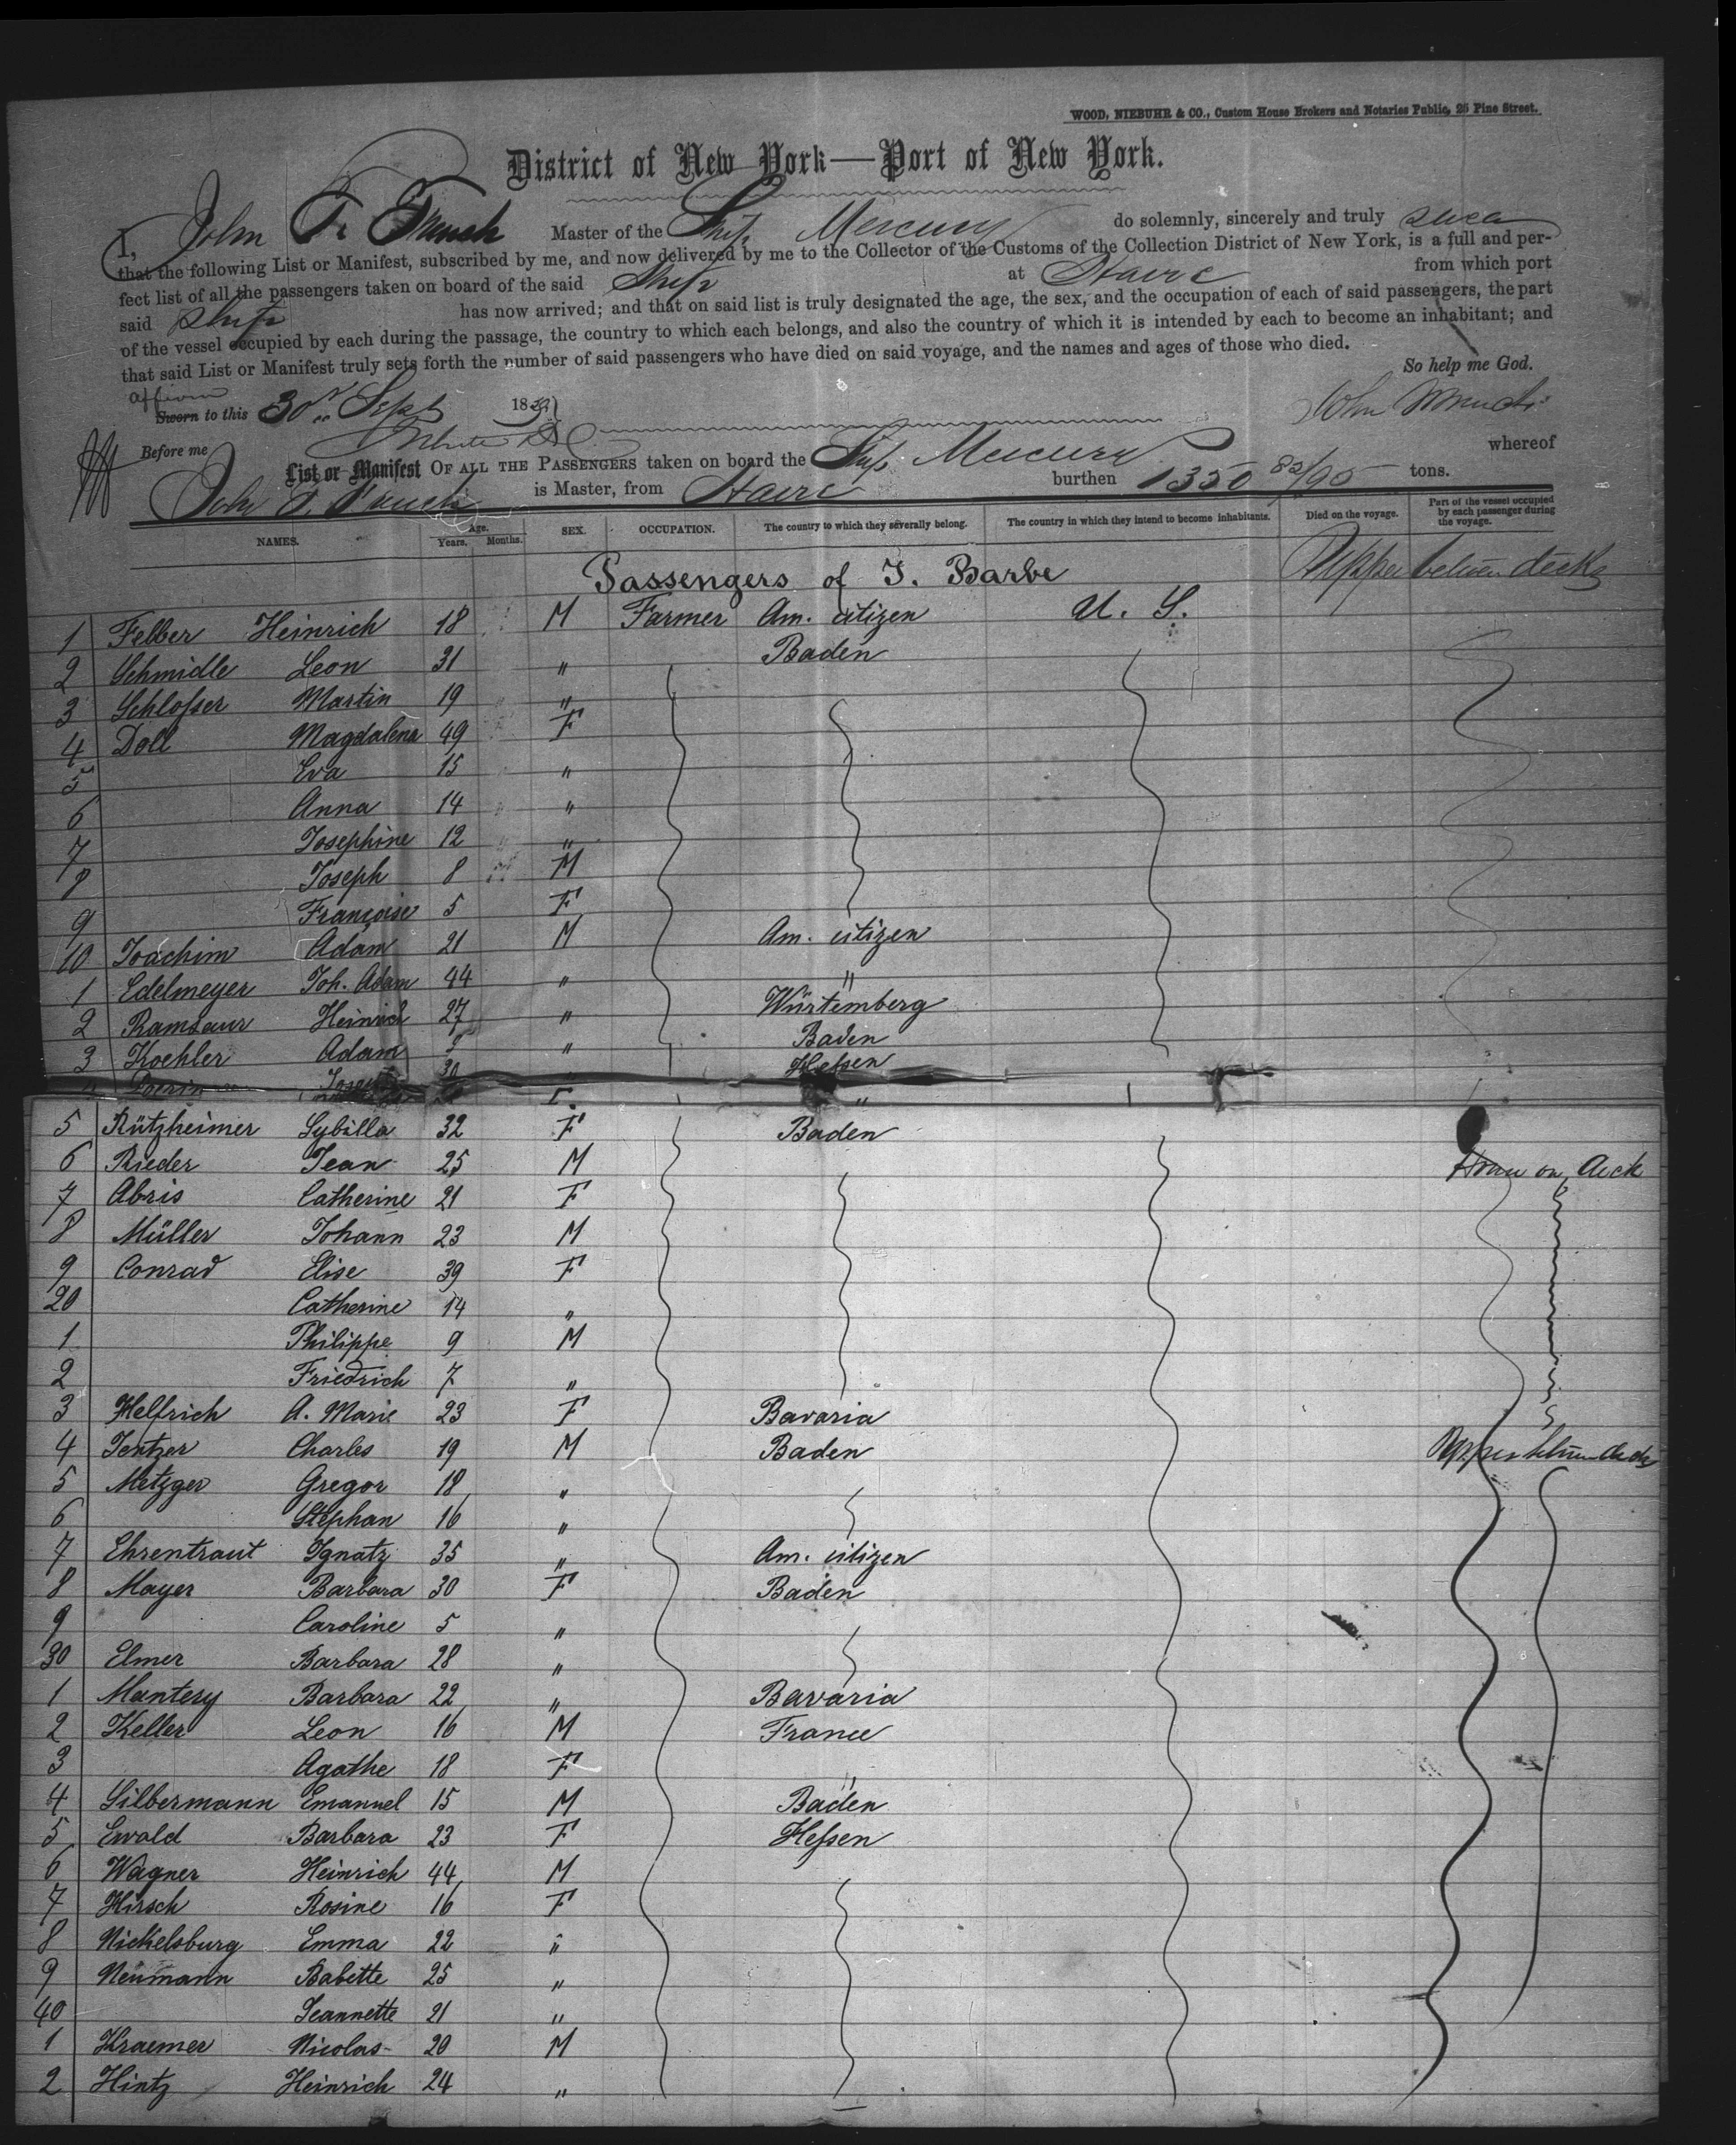 WOOD, NIEBUHR & CO., Custom House Brokers and Notaries Public, 25 Pine Street.
District of New York—Port of New York.
I, John Master of the Ship Mercury do solemnly, sincerely and truly
that the following List or Manifest, subscribed by me, and now delivered by me to the Collector of the Customs of the Collection District of New York, is a full and per-
fect list of all the passengers taken on board of the said Ship at Havre from which port
said Ship has now arrived; and that on said list is truly designated the age, the sex, and the occupation of each of said passengers, the part
of the vessel occupied by each during the passage, the country to which each belongs, and also the country of which it is intended by each to become an inhabitant; and
that said List or Manifest truly sets forth the number of said passengers who have died on said voyage, and the names and ages of those who died.
So help me God.
affirm
Sworn to this 30 Sept 18 John
Before me
List or Manifest OF ALL THE PASSENGERS taken on board the Ship Mercury whereof
John is Master, from Havre burthen 1350 tons.
NAMES. Age. Years. Months. SEX. OCCUPATION. The country to which they severally belong. The country in which they intend to become inhabitants. Died on the voyage. Part of the vessel occupied by each passenger during the voyage.
Passengers of J. Barbe Upper decks
1 Felber Heinrich 18 M Farmer Am. citizen U. S.
2 Schmidle Leon 31 " Baden
3 Schloſser Martin 19 "
4 Doll Magdalena 49 F
5 Eva 15 "
6 Anna 14 "
7 Josephine 12 "
8 Joseph 8 M
9 Françoise 5 F
10 Joachim Adam 21 M Am. citizen
1 Edelmeyer Joh. Adam 44 " "
2 Ramsaur Heinrich 27 " Würtemberg
3 Koehler Adam " Baden
30 Heſsen
"
5 Rützheimer Sybilla 32 F Baden
6 Rieder Jean 25 M on deck
7 Abris Catherine 21 F
8 Müller Johann 23 M
9 Conrad Elise 39 F
20 Catherine 14 "
1 Philippe 9 M
2 Friedrich 7 "
3 Helfrich A. Marie 23 F Bavaria
4 Jentzer Charles 19 M Baden Upper
5 Metzger Gregor 18 "
6 Stephan 16 "
7 Ehrentraut Ignatz 35 " Am. citizen
8 Mayer Barbara 30 F Baden
9 Caroline 5 "
30 Elmer Barbara 28 "
1 Mantery Barbara 22 " Bavaria
2 Keller Leon 16 M France
3 Agathe 18 F "
4 Silbermann Emanuel 15 M Baden
5 Ewald Barbara 23 F Heſsen
6 Wagner Heinrich 44 M
7 Hirsch Rosine 16 F
8 Nickelsburg Emma 22 "
9 Neümann Babette 25 "
40 Jeannette 21 "
1 Kraemer Nicolas 20 M
2 Hintz Heinrich 24 "